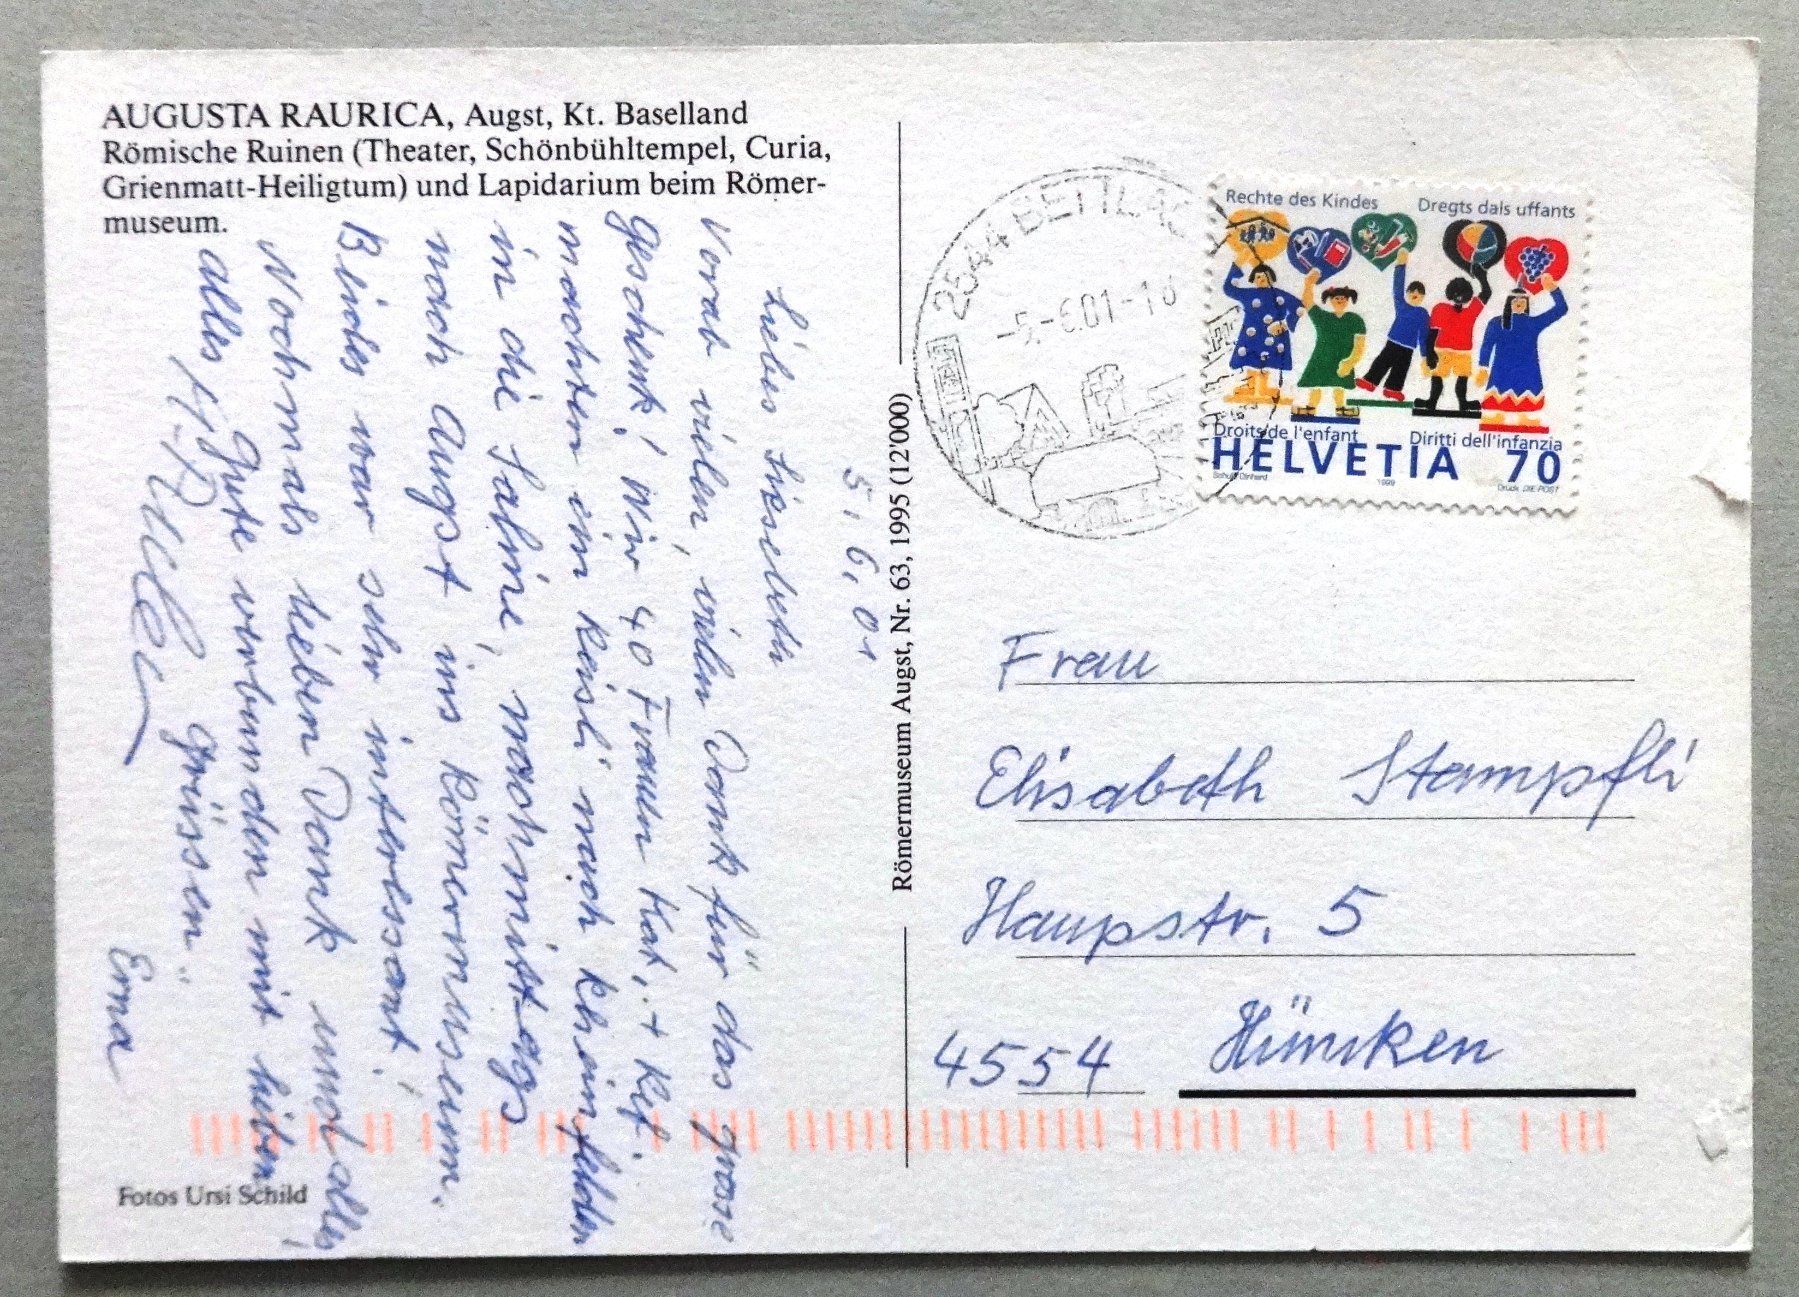 AUGUSTA RAURICA, Augst, Kt. Baselland
Römische Ruinen (Theater, Schönbühltempel, Curia,
Grienmatt-Heiligtum) und Lapidarium beim Römer-
museum.
5.6.01
Liebes Liesebeth
Vorab vielen, vielen Dank für das grosse
geschenk! Wir 40 Frauen Kat, + Ref.
machten ein Reisli nach Rheinfelden
in die Saline, nachmittags
nach Augst ins Römermuseum.
Beides war sehr interessant!
Nochmals lieben Dank und alles
alles gute verbunden mit lieben
grüssen
Erna
Fotos Ursi Schild
Römermuseum Augst, Nr. 63, 1995 (12'000)
2544 BETTLAC
-5.-6.01-1
Rechte des Kindes Dregts dals uffants
Droits de l'enfant Diritti dell'infanzia
HELVETIA 70
1999 Druck DIE POST
Frau
Elisabeth Stampfli
Haupstr. 5
4554 Hüniken